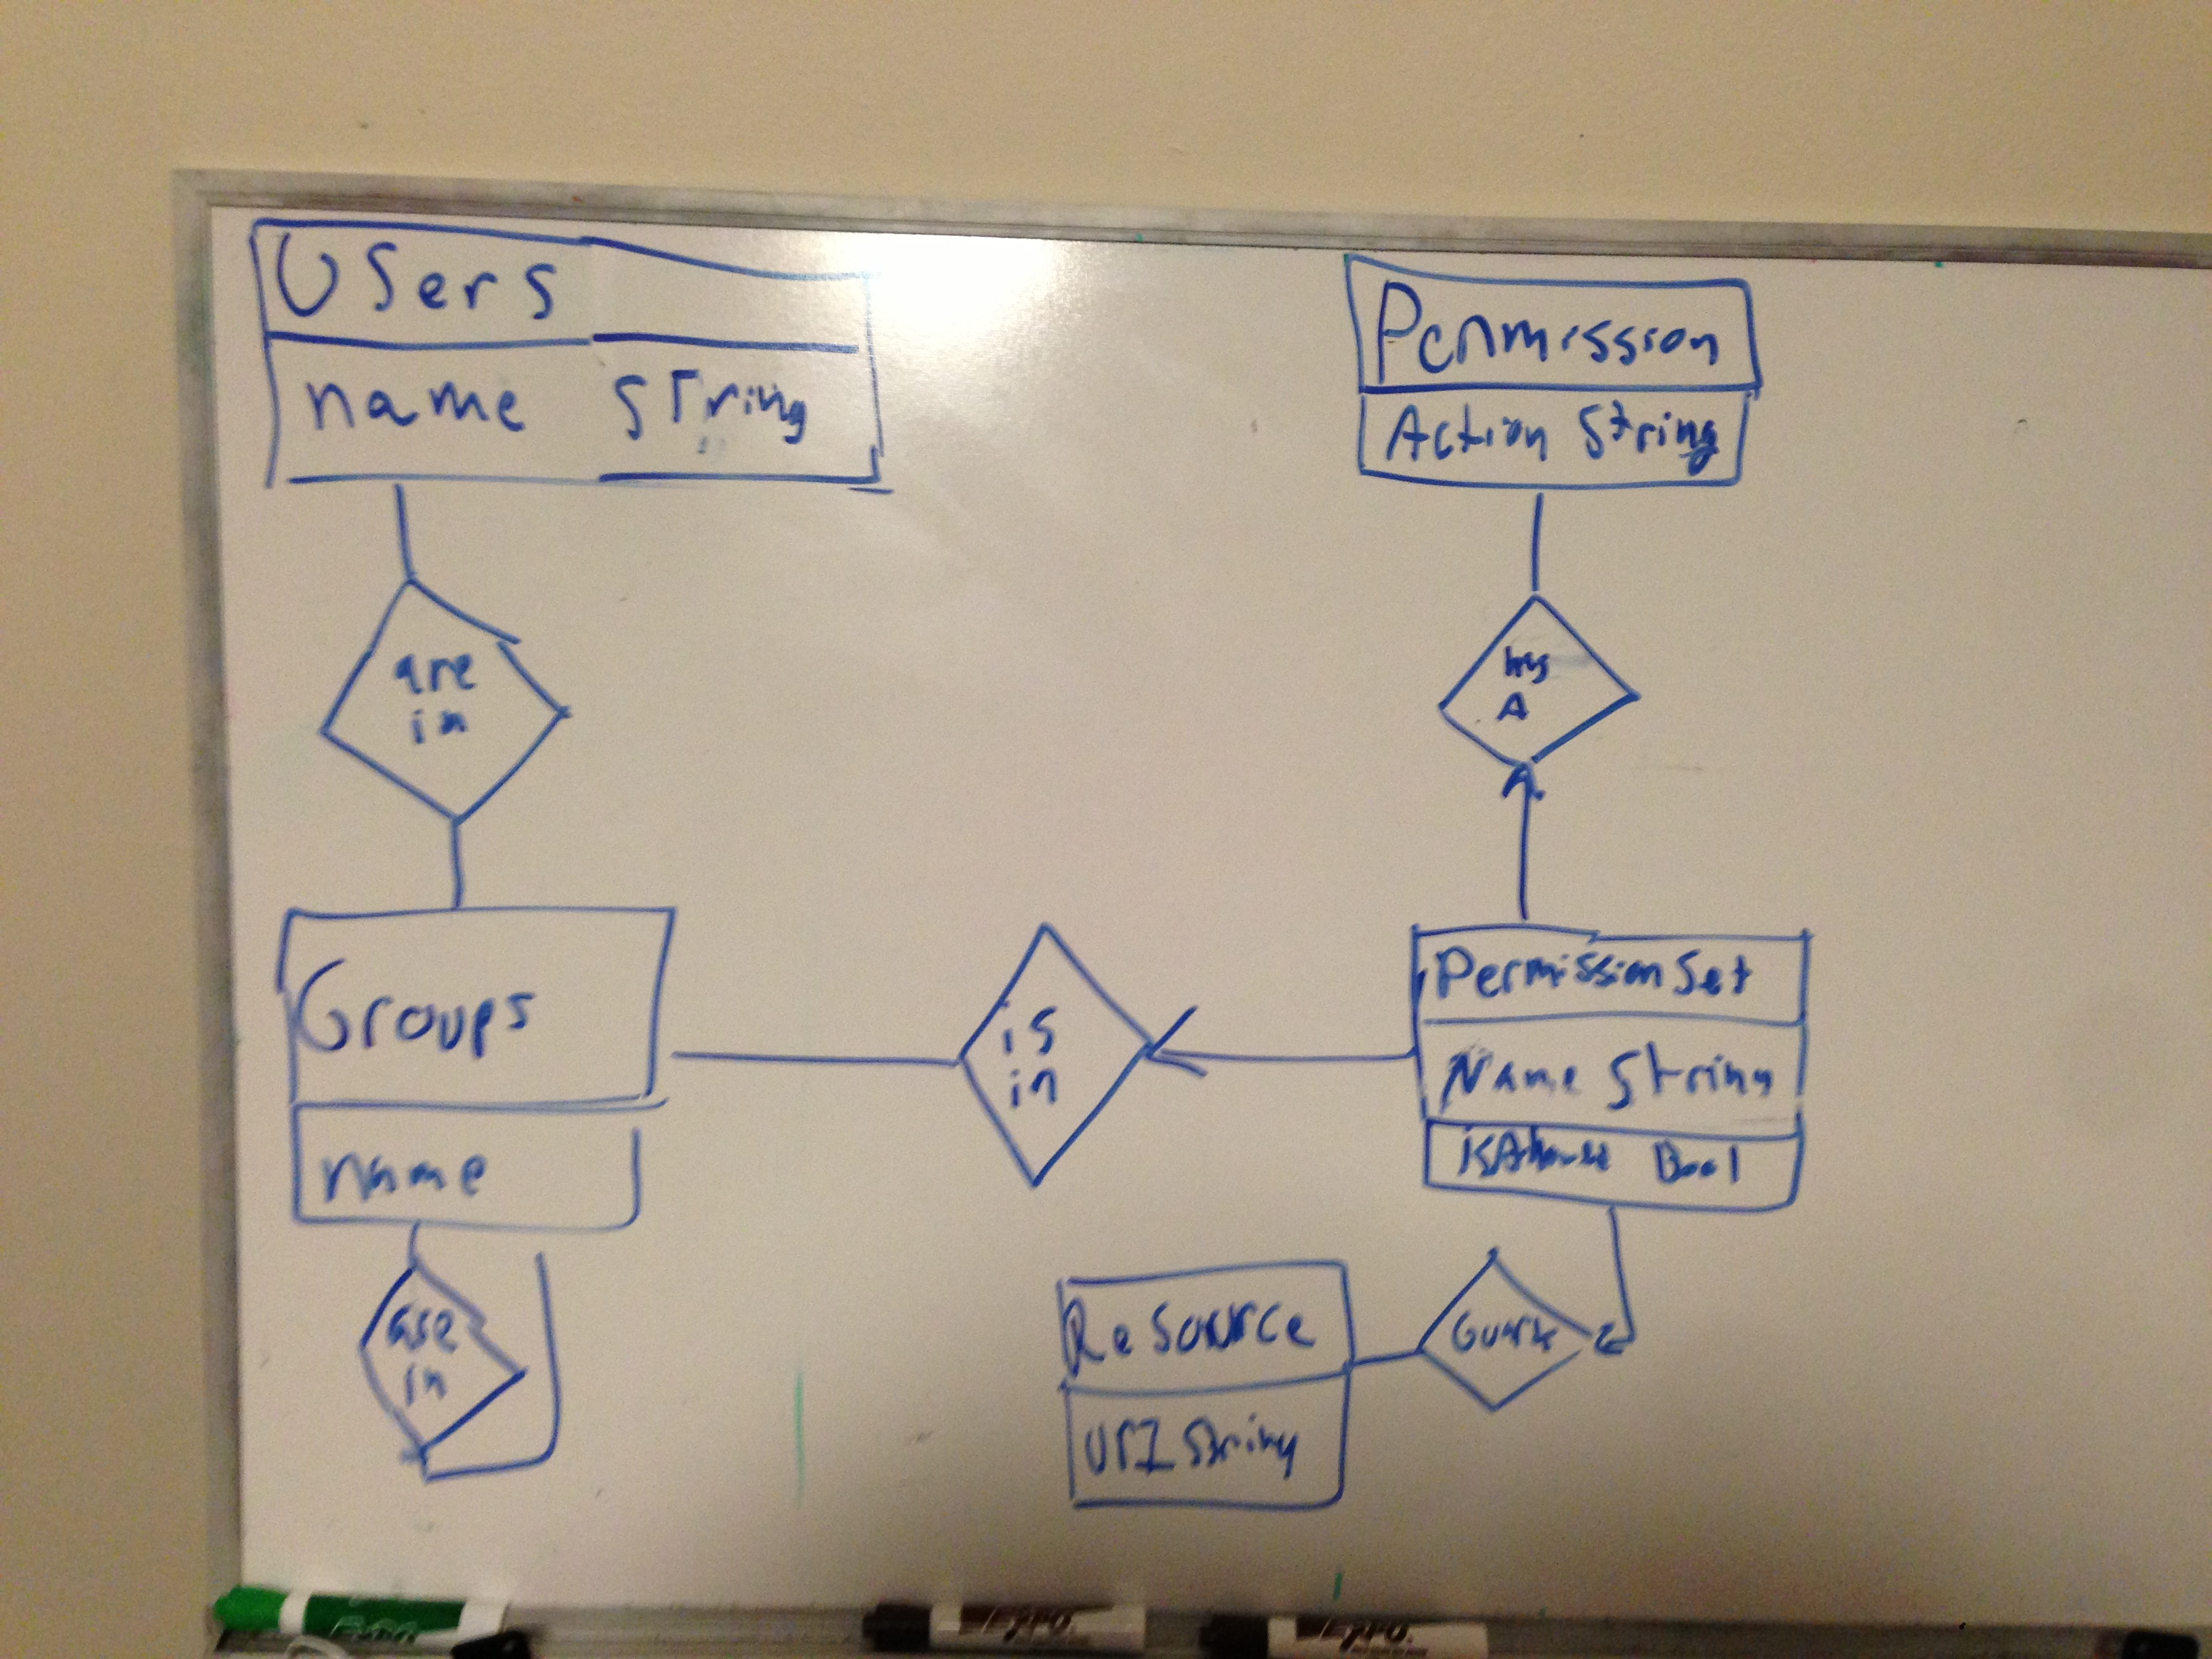 Users
name String
are
in
Groups
name
are
in
is
in
Permission
Action String
has
A
PermissionSet
Name String
Bool
Resource
URI String
EXPO
EXPO.
EXPO.